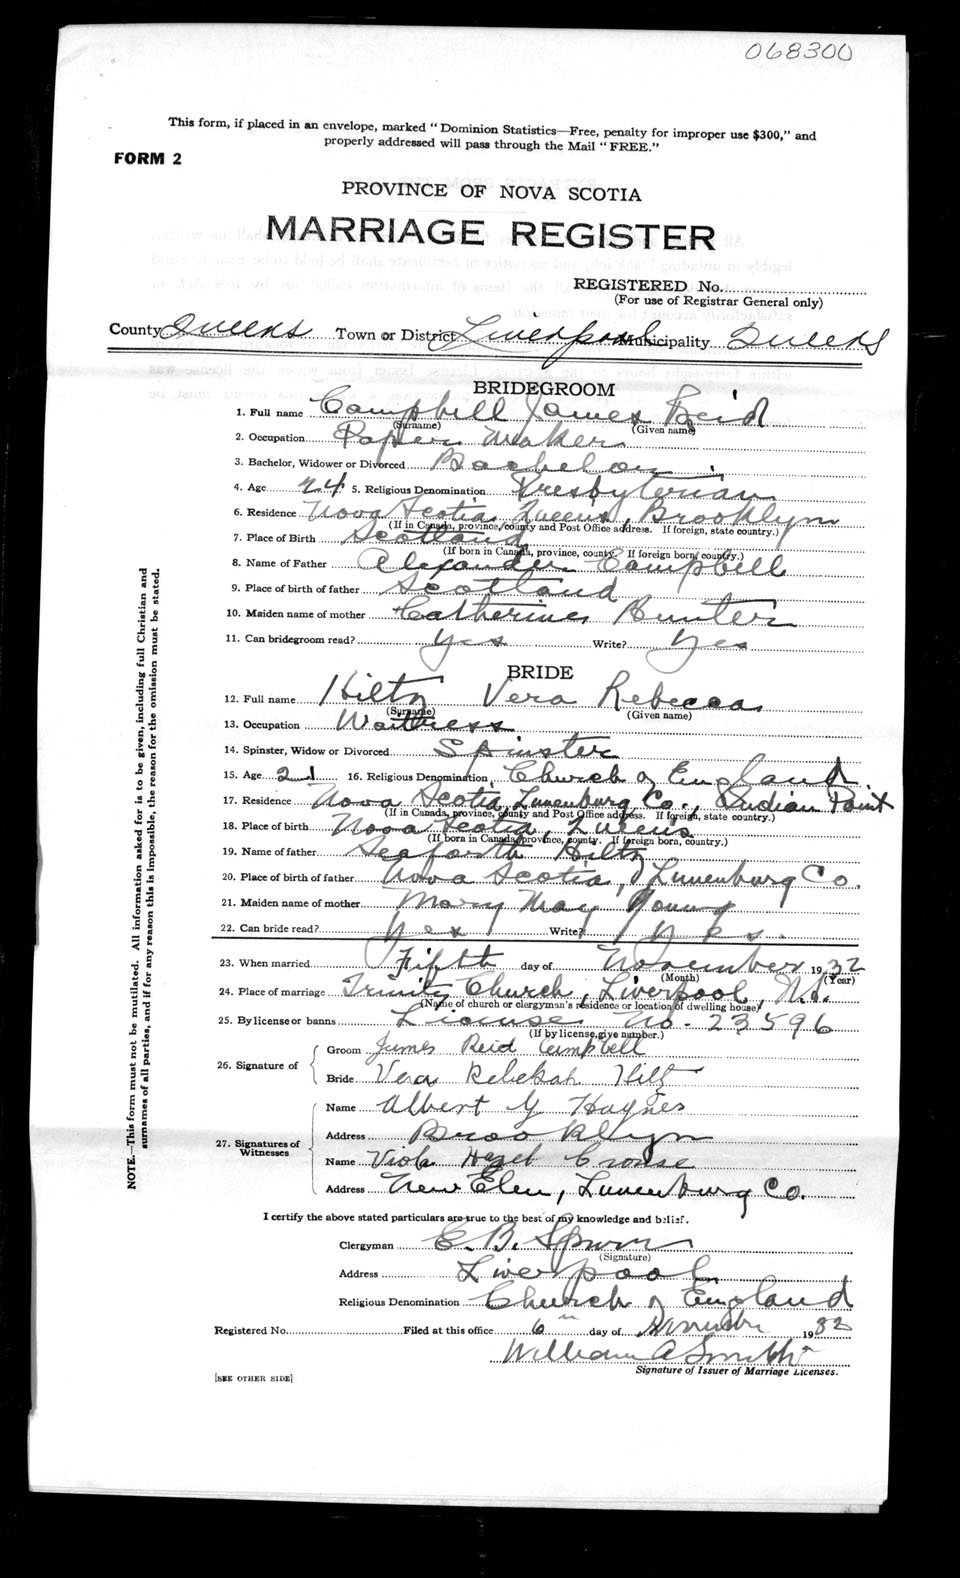 068300
This form, if placed in an envelope, marked "Dominion Statistics—Free, penalty for improper use $300," and
properly addressed will pass through the Mail "FREE."
FORM 2
PROVINCE OF NOVA SCOTIA
MARRIAGE REGISTER
REGISTERED No.
(For use of Registrar General only)
County Queens Town or District Liverpool Municipality Queens
BRIDEGROOM
1. Full name Campbell James Reid
(Surname) (Given name)
2. Occupation Paper Maker
3. Bachelor, Widower or Divorced Bachelor
4. Age 24 5. Religious Denomination Presbyterian
6. Residence Nova Scotia, Queens, Brooklyn
(If in Canada, province, county and Post Office address. If foreign, state country.)
7. Place of Birth Scotland
(If born in Canada, province, county. If foreign born, country.)
8. Name of Father Alexander Campbell
9. Place of birth of father Scotland
10. Maiden name of mother Catherine Hunter
11. Can bridegroom read? Yes Write? Yes
BRIDE
12. Full name Hiltz Vera Rebecca
(Surname) (Given name)
13. Occupation Waitress
14. Spinster, Widow or Divorced Spinster
15. Age 21 16. Religious Denomination Church of England
17. Residence Nova Scotia, Lunenburg Co., Indian Point
(If in Canada, province, county and Post Office address. If foreign, state country.)
18. Place of birth Nova Scotia, Queens
(If born in Canada, province, county. If foreign born, country.)
19. Name of father Seaforth Hiltz
20. Place of birth of father Nova Scotia, Lunenburg Co.
21. Maiden name of mother Mary May Young
22. Can bride read? Yes Write? Yes.
23. When married Fifth day of November 1932
(Month) (Year)
24. Place of marriage Trinity Church, Liverpool, N.S.
(Name of church or clergyman's residence or location of dwelling house)
25. By license or banns License No. 23596
(If by license, give number.)
26. Signature of
Groom James Reid Campbell
Bride Vera Rebekah Hiltz
27. Signatures of Witnesses
Name Albert Y Haynes
Address Brooklyn
Name Viola Hazel Crouse
Address New Elm, Lunenburg Co.
I certify the above stated particulars are true to the best of my knowledge and belief.
Clergyman E. B. Spurr
(Signature)
Address Liverpool
Religious Denomination Church of England
Registered No. Filed at this office 6th day of November 1932
William A Smith
Signature of Issuer of Marriage Licenses.
[SEE OTHER SIDE]
NOTE.—This form must not be mutilated. All information asked for is to be given, including full Christian and
surnames of all parties, and if for any reason this is impossible, the reason for the omission must be stated.